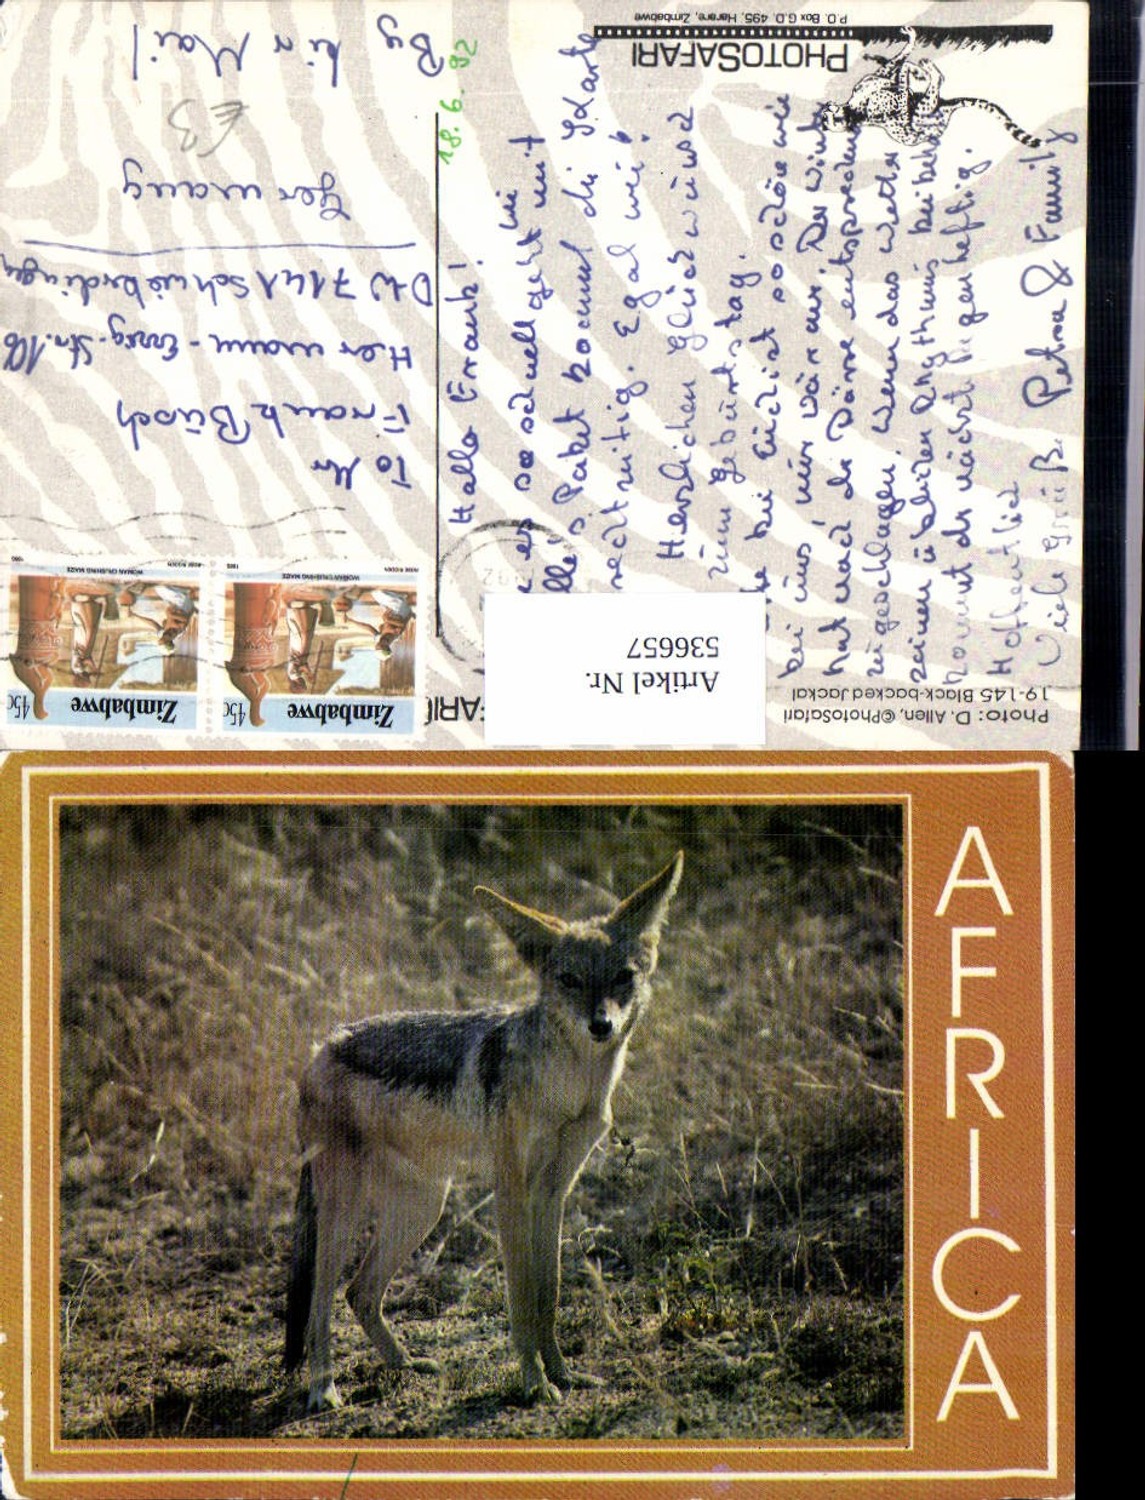 PHOTOSAFARI
P.O. Box G.D. 495, Harare, Zimbabwe
Photo: D. Allen, ©PhotoSafari
19-145 Black-backed Jackal
Artikel Nr.
536657
Zimbabwe
45c
WOMAN CRUSHING MAIZE
Zimbabwe
45c
WOMAN CRUSHING MAIZE
To Mr
Frank Büsch
Hermann-Essig-Str. 106
D-W 7141 Schwieberdingen
Germany
By Air Mail
€3
18.6.92
Hallo Frank!
es so schnell geht mit
Paket kommt die Karte
rechtzeitig. Egal wie!
Herzlichen Glückwunsch
zum Geburtstag.
bei Euch ist so schön wie
bei uns, nur wärmer. Der Winter
hat nach der Dürre entsprechend
zugeschlagen. Wenn das Wetter
seinen üblichen Rhythmus beibehält
kommt der nächste Regen heftig.
Hoffentlich
Viele Grüße Petra & Family
AFRICA